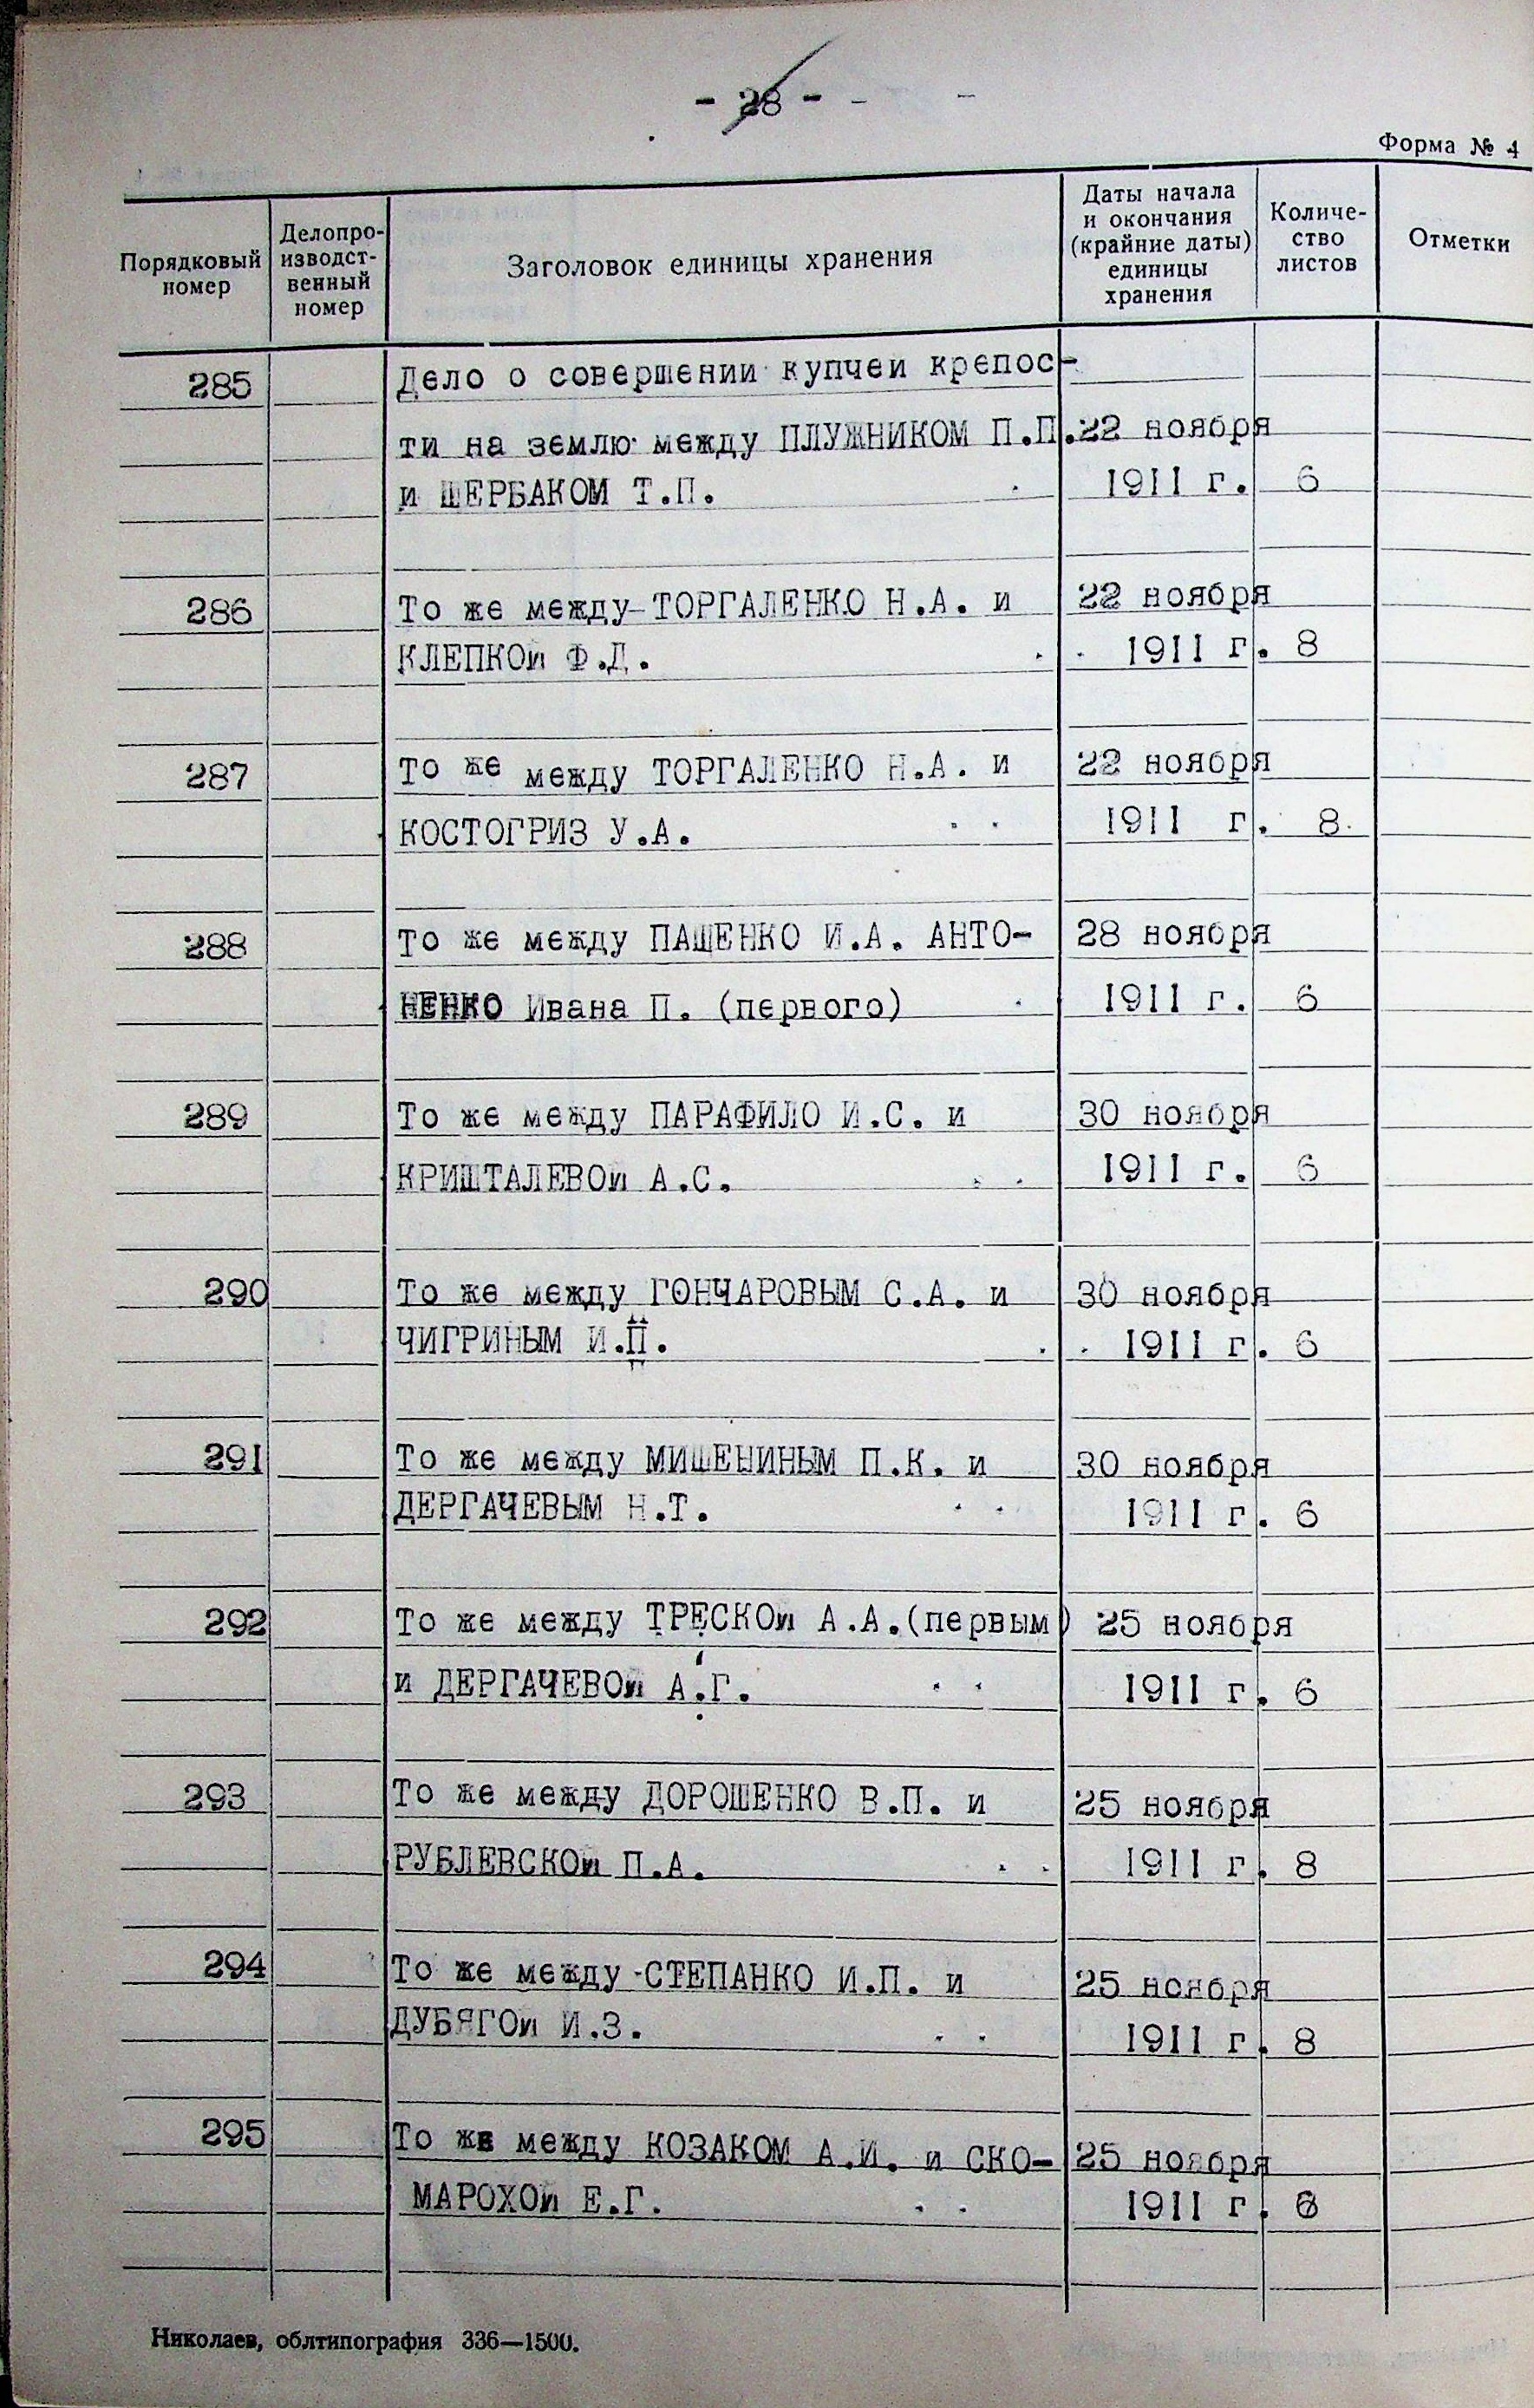 - 28 -
Форма № 4
Порядковый номер
Делопро-
изводст-
венный
номер
Заголовок единицы хранения
Даты начала
и окончания
(крайние даты)
единицы
хранения
Количе-
ство
листов
Отметки
285 Дело о совершении купчеи крепос-
ти на землю между ПЛУЖНИКОМ П.П. 22 ноября
и ШЕРБАКОМ Т.П. 1911 г. 6
286 То же между ТОРГАЛЕНКО Н.А. и 22 ноября
КЛЕПКОИ Ф.Д. 1911 г. 8
287 То же между ТОРГАЛЕНКО Н.А. и 22 ноября
КОСТОГРИЗ У.А. 1911 г. 8
288 То же между ПАШЕНКО И.А. АНТО- 28 ноября
НЕНКО Ивана П. (первого) 1911 г. 6
289 То же между ПАРАФИЛО И.С. и 30 ноября
КРИШТАЛЕВОи А.С. 1911 г. 6
290 То же между ГОНЧАРОВЫМ С.А. и 30 ноября
ЧИГРИНЫМ И.П. 1911 г. 6
291 То же между МИШЕНИНЫМ П.К. и 30 ноября
ДЕРГАЧЕВЫМ Н.Т. 1911 г. 6
292 То же между ТРЕСКОи А.А.(первым) 25 ноября
и ДЕРГАЧЕВОи А.Г. 1911 г. 6
293 То же между ДОРОШЕНКО В.П. и 25 ноября
РУБЛЕВСКОи П.А. 1911 г. 8
294 То же между СТЕПАНКО И.П. и 25 ноября
ДУБЯГОи И.З. 1911 г. 8
295 То же между КОЗАКОМ А.И. и СКО- 25 ноября
МАРОХОи Е.Г. 1911 г. 6
Николаев, облтипография 336—1500.